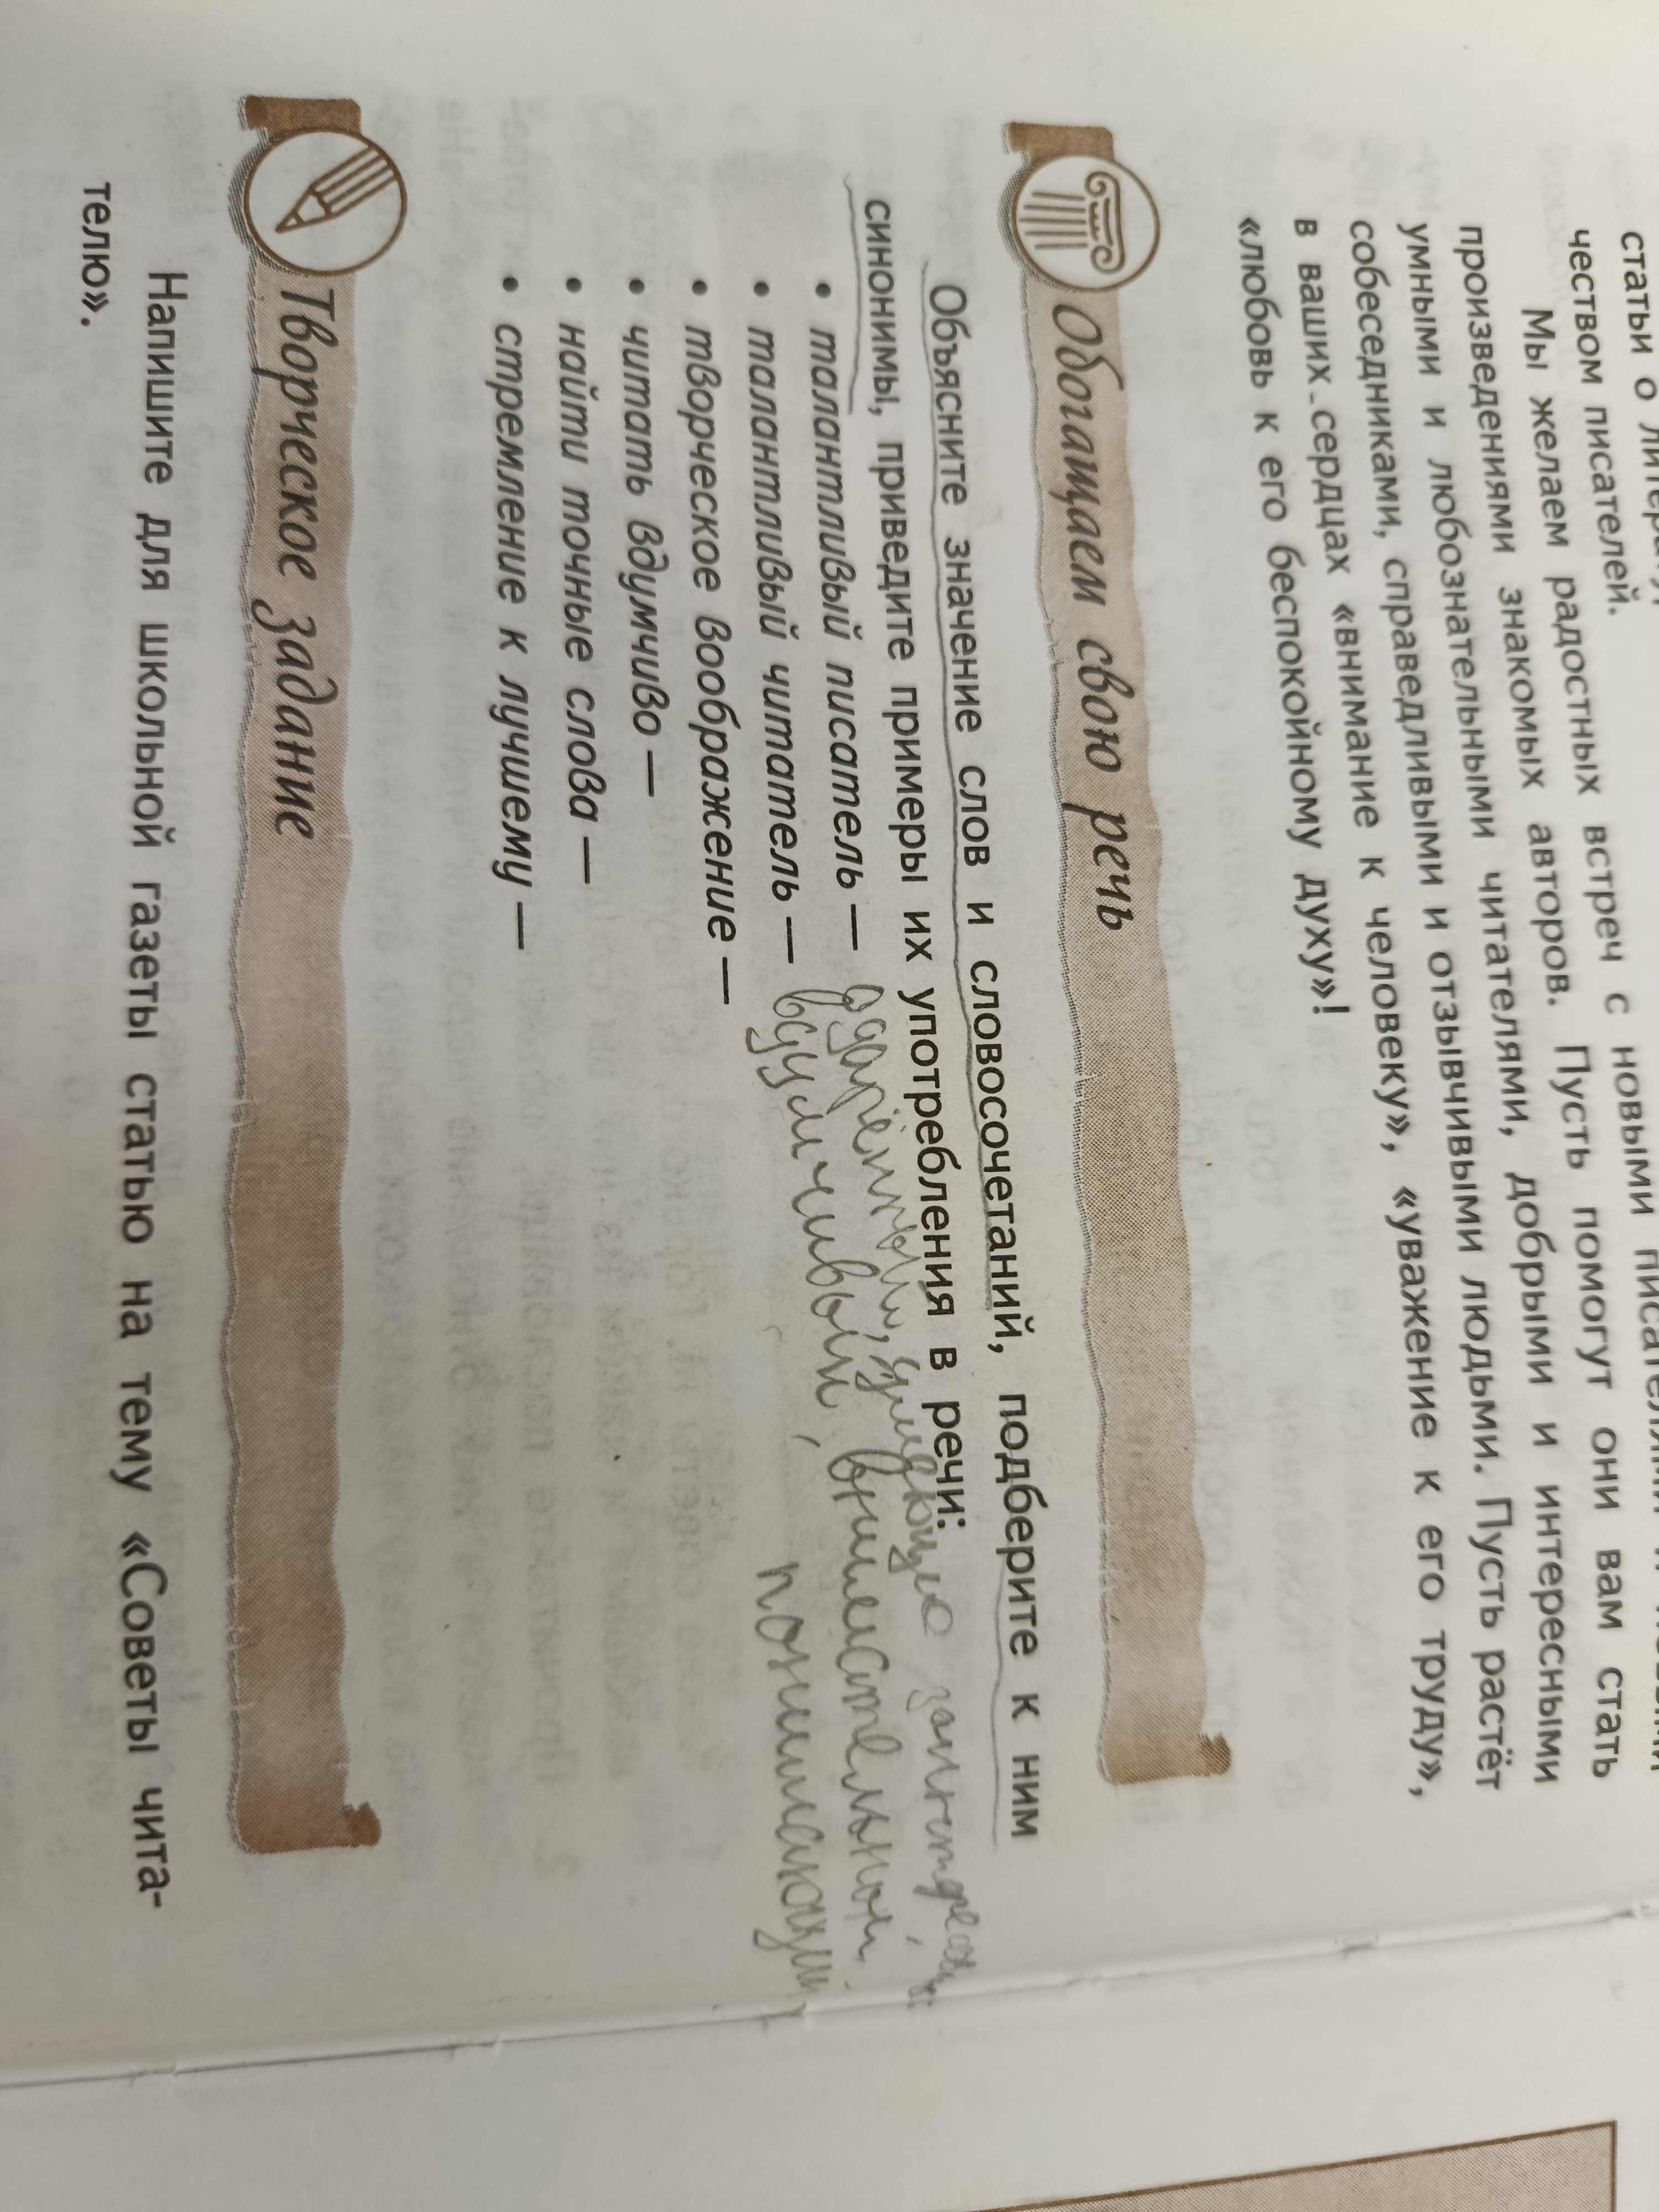 статьи о
чеством писателей.
Мы желаем радостных встреч с новыми писателями и новыми
произведениями знакомых авторов. Пусть помогут они вам стать
умными и любознательными читателями, добрыми и интересными
собеседниками, справедливыми и отзывчивыми людьми. Пусть растёт
в ваших сердцах «внимание к человеку», «уважение к его труду»,
«любовь к его беспокойному духу»!
Обогащаем свою речь
Объясните значение слов и словосочетаний, подберите к ним
синонимы, приведите примеры их употребления в речи:
• талантливый писатель — одарённый,
• талантливый читатель — вдумчивый, внимательный,
понимающий
• творческое воображение —
• читать вдумчиво —
• найти точные слова —
• стремление к лучшему —
Творческое задание
Напишите для школьной газеты статью на тему «Советы чита-
телю».